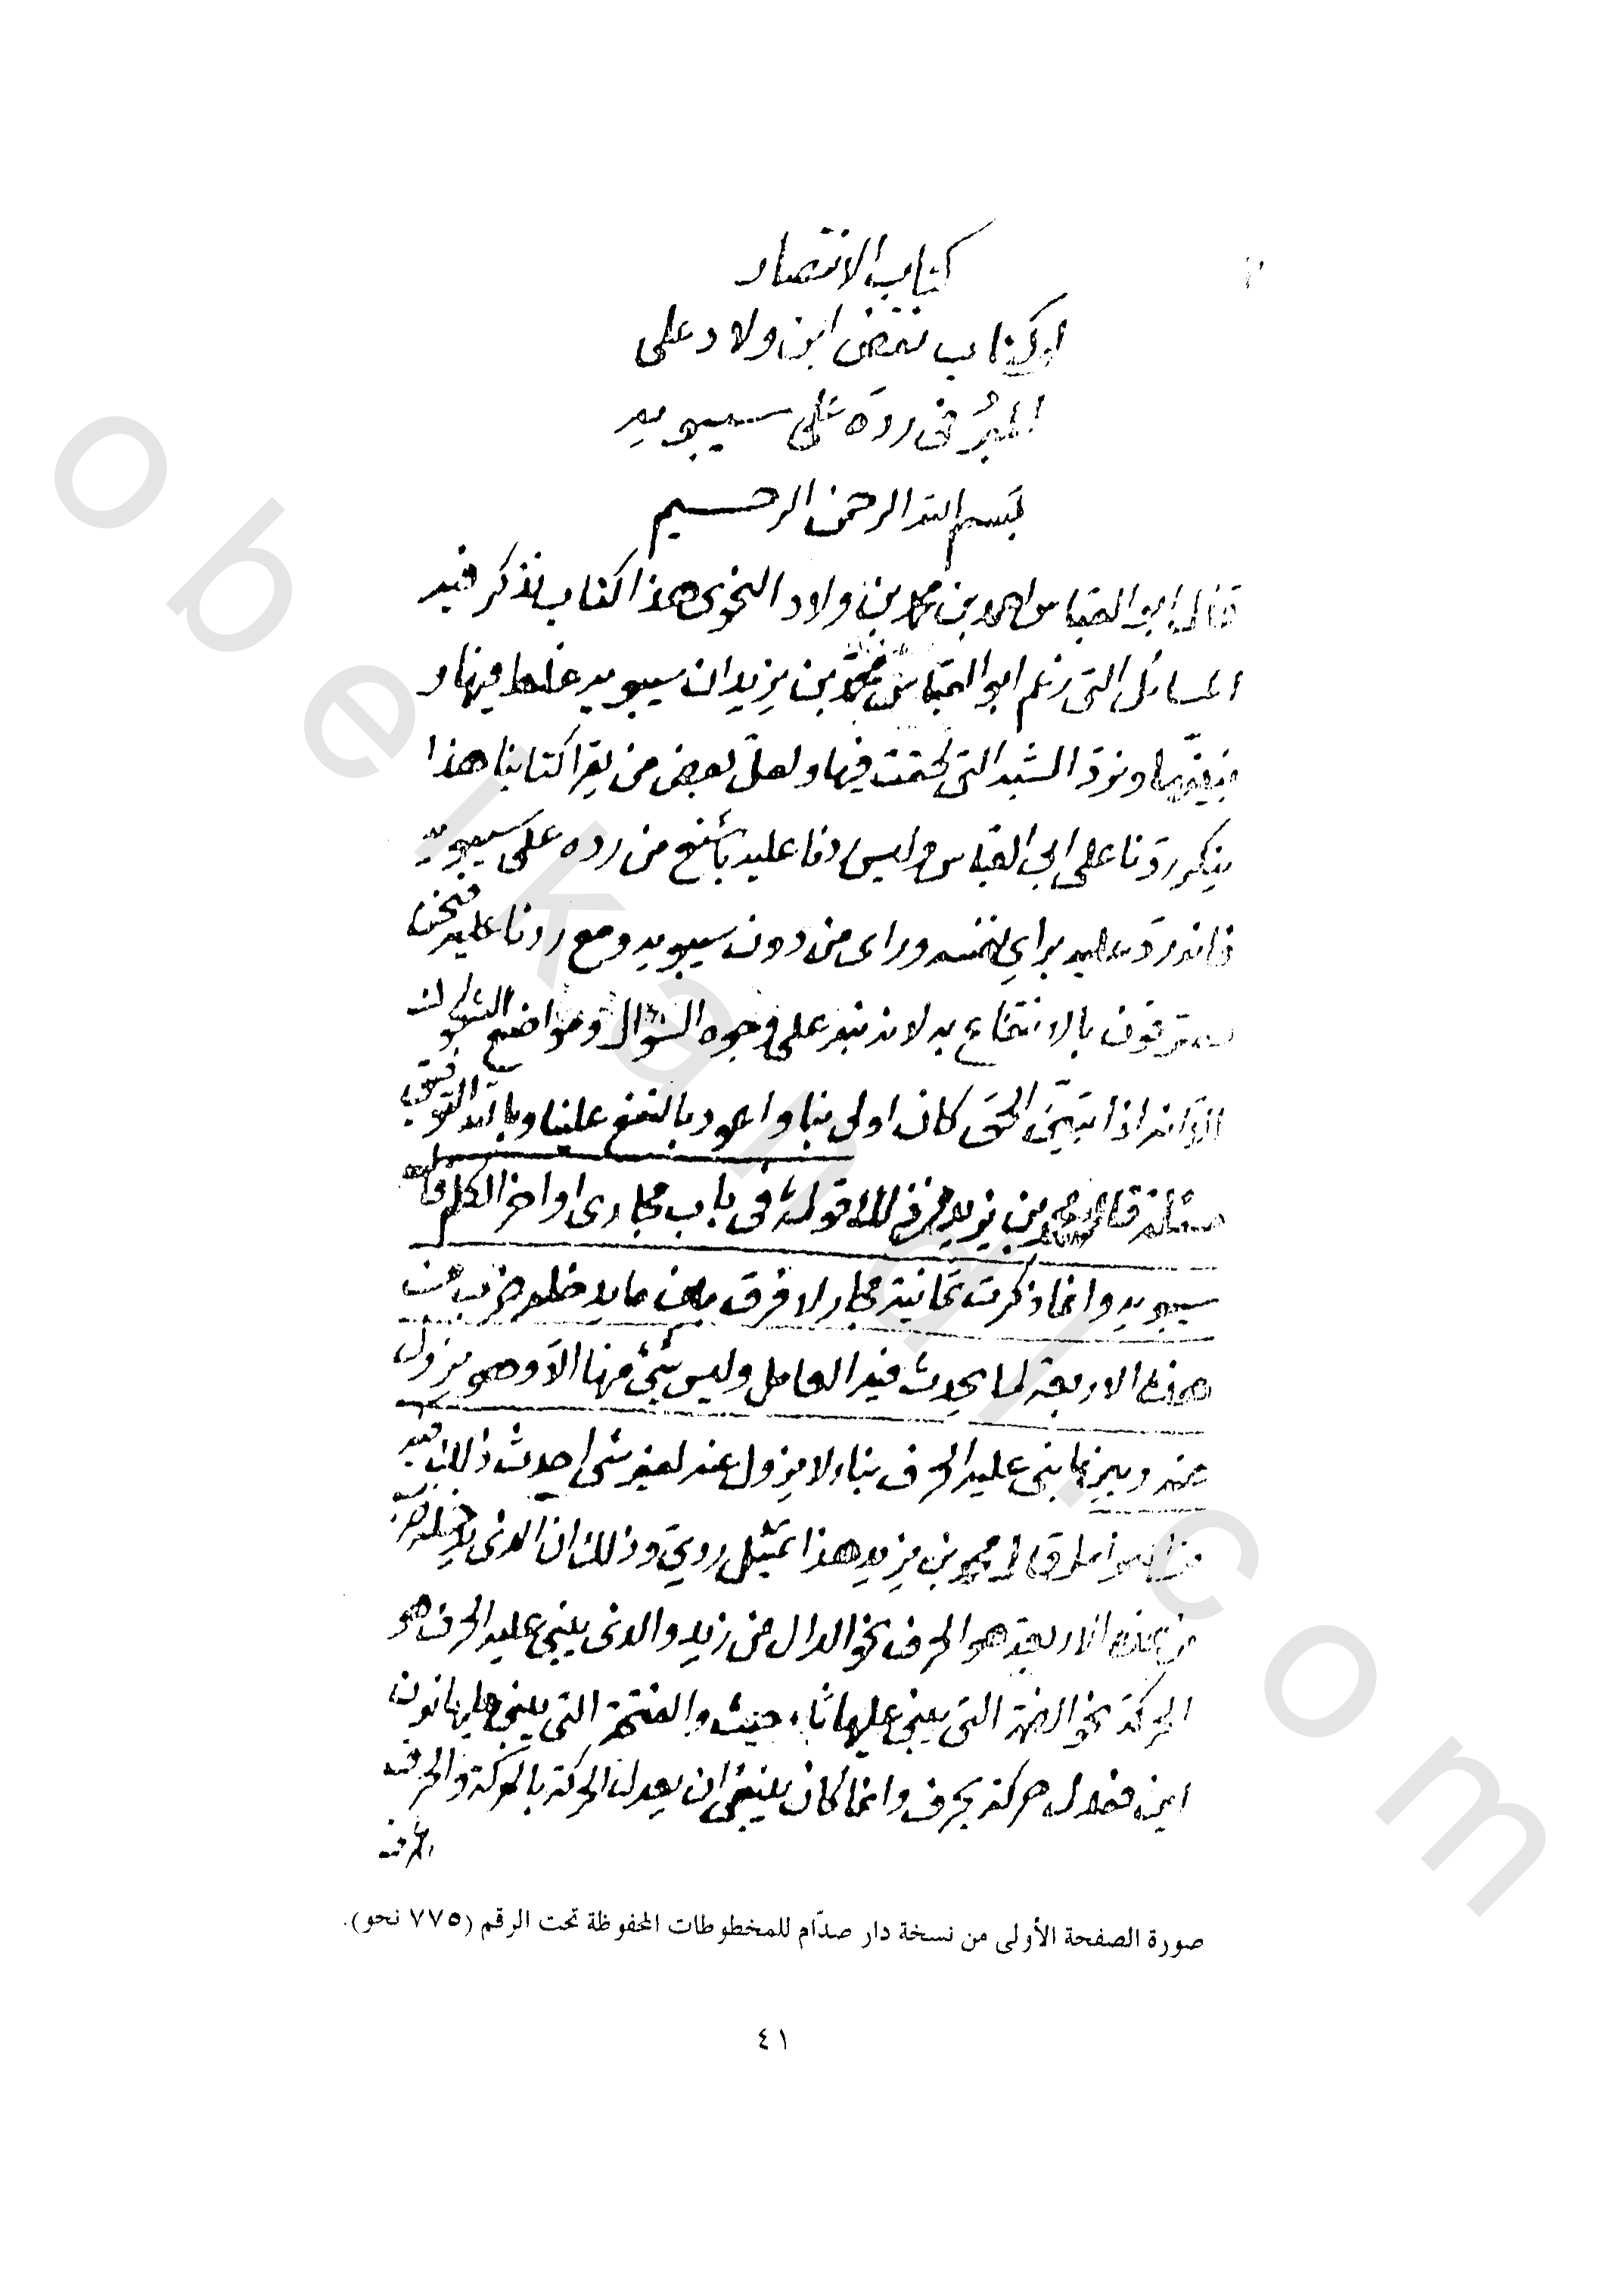 كتاب الانتصار
او كتاب نقض ابن ولاد على
المبرد فى رده على سيبويه
بسم الله الرحمن الرحيم
قال ابو العباس احمد بن محمد بن ولاد النحوى هذا كتاب نذكر فيه
المسائل التى زعم ابو العباس محمد بن يزيد ان سيبويه غلط فيها و
نبينها ونرد الشبه التى لحقت فيها ولعل بعض من يقرا كتابنا هذا
ينكر ردنا على ابى العباس وليس ردنا عليه باشنع من رده على سيبويه
فانه رد عليه براى نفسه وراى من دون سيبويه ومع ردنا عليه فنحن
معترفون بالانتفاع به لانه نبه على وجوه السؤال ومواضع الشكوك
الا انه اذا تبين الحق كان اولى بنا واعود بالنفع علينا وبالله التوفيق
مسئلة قال محمد بن يزيد فمن ذلك قوله فى باب مجارى اواخر الكلم قال
سيبويه وانما ذكرت ثمانية مجار لا فرق بين ما يدخله ضرب من
هذه الاربعة لما يحدث فيه العامل وليس شئ منها الا وهو يزول
عنه وبين ما بنى عليه الحرف بناء لا يزول عنه لغير شى احدث ذلك فيه
من العوامل قال محمد بن يزيد هذا تمثيل ردى وذلك ان الذى يدخله ضرب
من هذه الاربعة هو الحرف نحو الدال من زيد والذى يبنى عليه الحرف هو
الحركة نحو الضمة التى يبنى عليها ثاء حيث والفتحة التى يبنى عليها نون
اين فعدل حركة بحرف وانما كان ينبغى ان يعدل الحركة بالحركة والحرف
بالحرف
صورة الصفحة الأولى من نسخة دار صدّام للمخطوطات المحفوظة تحت الرقم (٧٧٥ نحو).
٤١
obeikandl.com